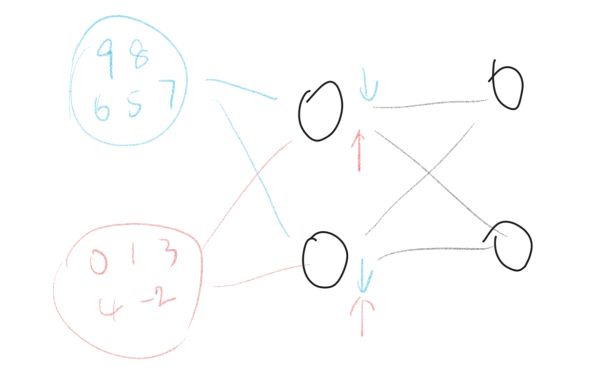 9 8
6 5 7
0 1 3
4 -2